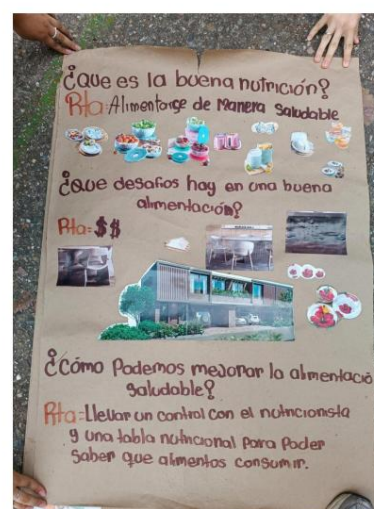 ¿Que es la buena nutrición?
Rta: Alimentarse de Manera Saludable
¿Que desafios hay en una buena
alimentación?
Rta= $$
¿Cómo Podemos mejorar la alimentació
Saludable?
Rta=Llevar un control con el nutricionista
y una tabla nutricional Para Poder
Saber que alimentos consumir.